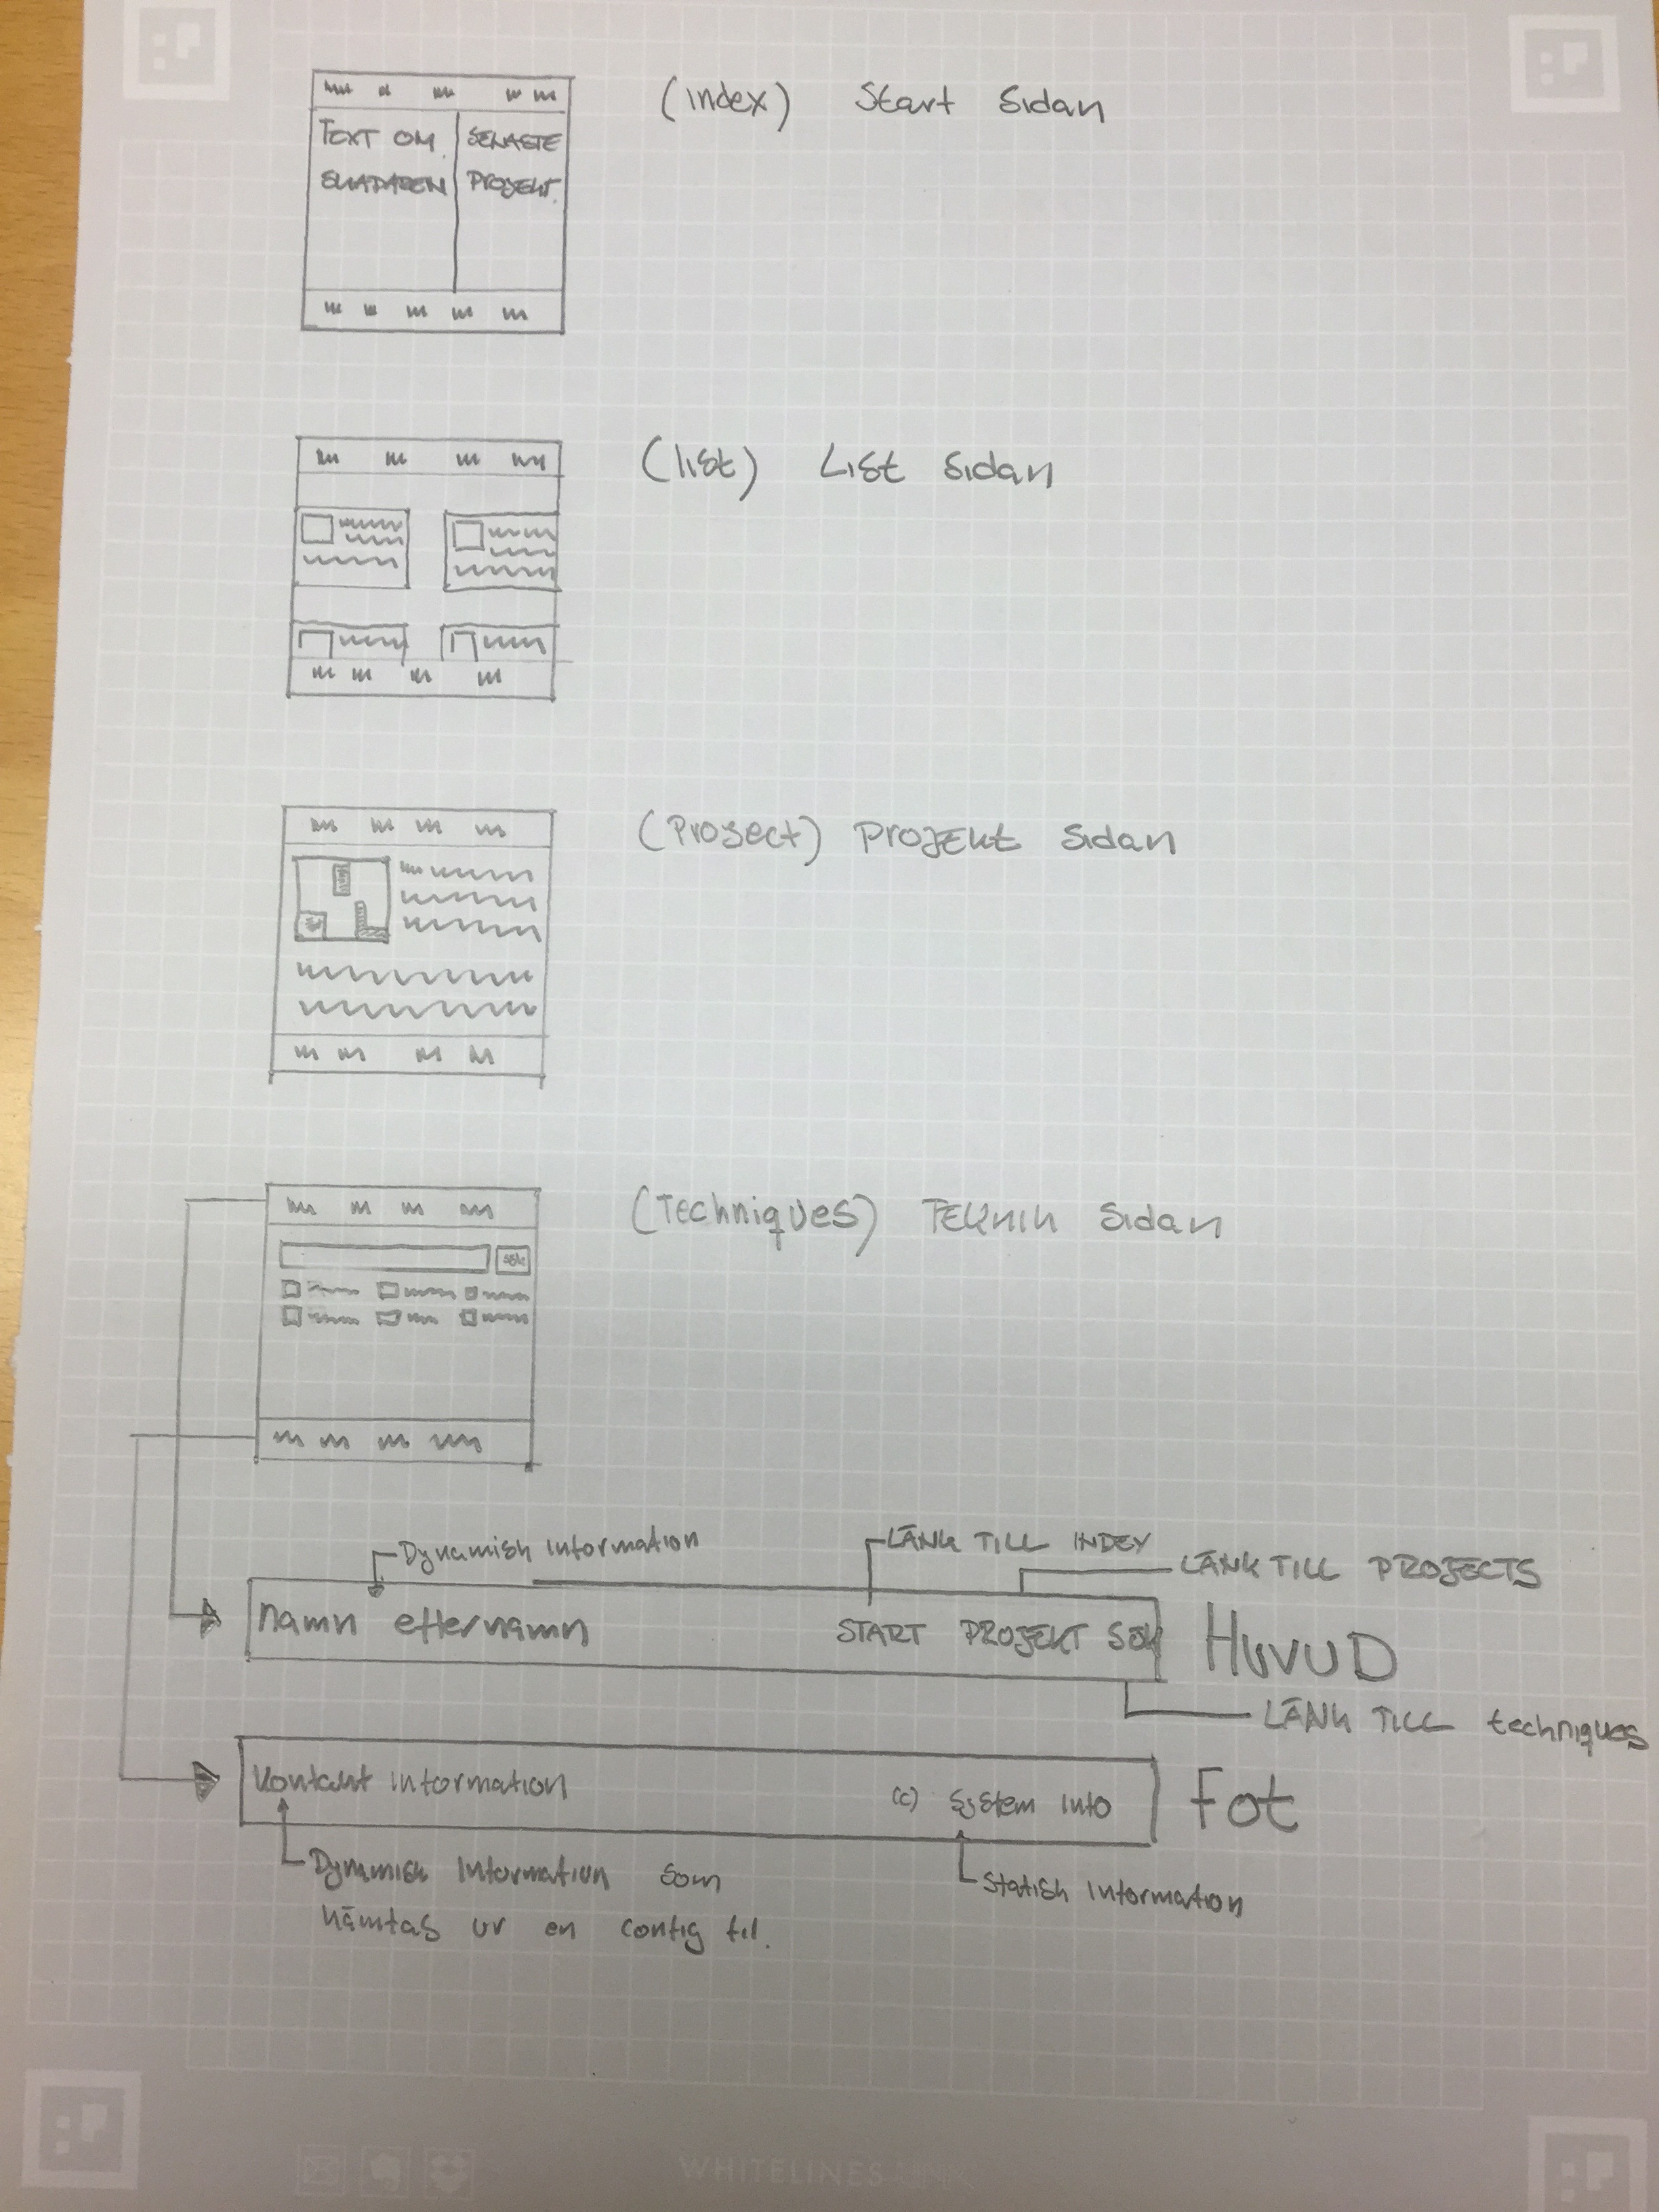 (index) Start sidan
TEXT OM SENASTE
SKAPAREN PROJEKT.
(list) List sidan
(Project) Projekt sidan
(Techniques) Teknik sidan
sök
Dynamisk information
LÄNK TILL INDEX
LÄNK TILL PROJECTS
namn efternamn START PROJEKT SÖK HUVUD
LÄNK TILL techniques
Kontakt information (c) System info Fot
Dynamisk information som
hämtas ur en config fil.
Statisk information
WHITELINES LINK